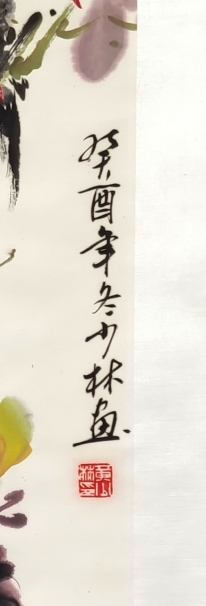 癸酉年冬少林画